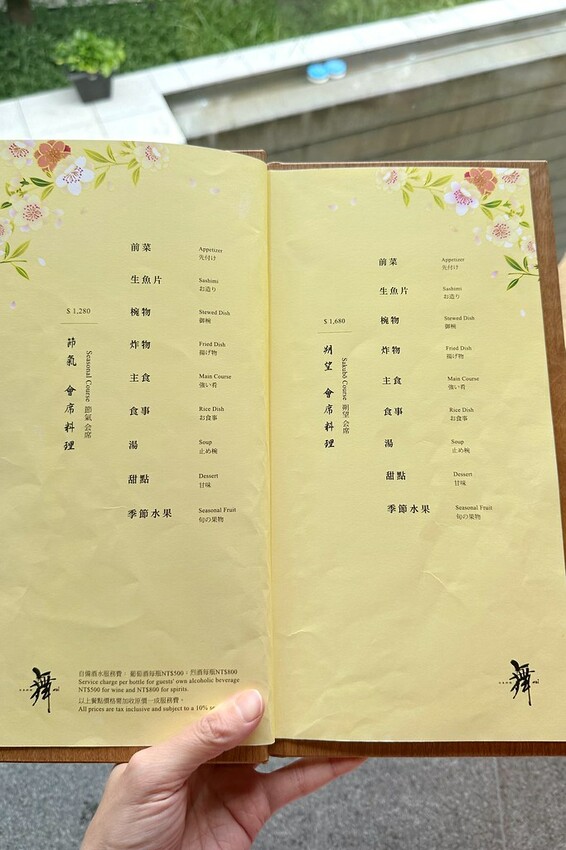 前菜
Appetizer
先付け
生魚片
Sashimi
お造り
椀物
Stewed Dish
御椀
炸物
Fried Dish
揚げ物
主食
Main Course
強い肴
食事
Rice Dish
お食事
湯
Soup
止め椀
甜點
Dessert
甘味
季節水果
Seasonal Fruit
旬の果物
$ 1,280
節氣 會席料理
Seasonal Course 節氣 会席
自備酒水服務費： 葡萄酒每瓶NT$500；烈酒每瓶NT$800
Service charge per bottle for guests' own alcoholic beverage
NT$500 for wine and NT$800 for spirits.
以上餐點價格需加收原價一成服務費。
All prices are tax inclusive and subject to a 10%
舞
mai
前菜
Appetizer
先付け
生魚片
Sashimi
お造り
椀物
Stewed Dish
御椀
炸物
Fried Dish
揚げ物
主食
Main Course
強い肴
食事
Rice Dish
お食事
湯
Soup
止め椀
甜點
Dessert
甘味
季節水果
Seasonal Fruit
旬の果物
$ 1,680
朔望 會席料理
Sakubō Course 朔望 会席
舞
mai